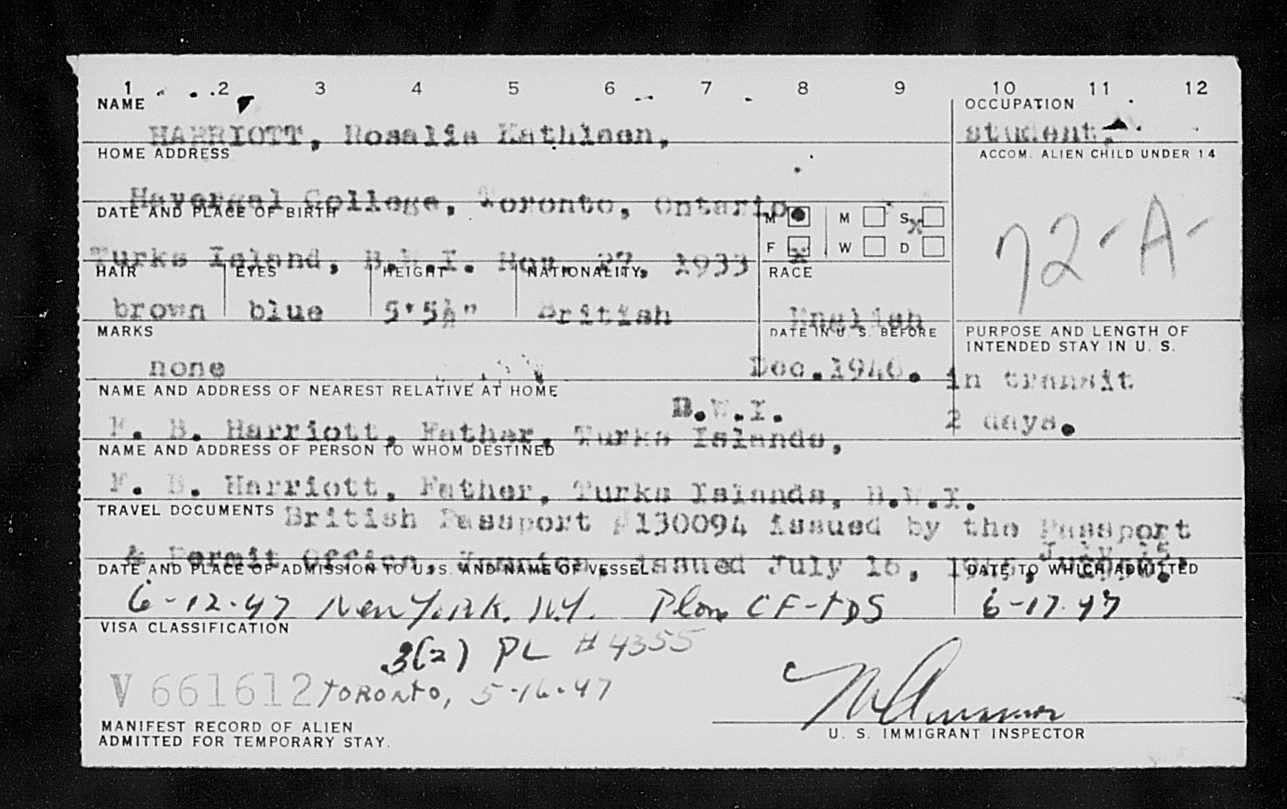 1 2 3 4 5 6 7 8 9 10 11 12
NAME
OCCUPATION
HARRIOTT, Rosalie Kathleen,
student,
HOME ADDRESS
ACCOM. ALIEN CHILD UNDER 14
Havergal College, Toronto, Ontario.
DATE AND PLACE OF BIRTH
M M S x
72-A-
F x W D
Turks Island, B.W.I. 27, 1933
HAIR EYES HEIGHT NATIONALITY RACE
brown blue 5'5½" British English
MARKS
DATE IN U. S. BEFORE
PURPOSE AND LENGTH OF
INTENDED STAY IN U. S.
none Dec.1946. in transit
NAME AND ADDRESS OF NEAREST RELATIVE AT HOME
B.W.I. 2 days.
F. B. Harriott, Father, Turks Islands,
NAME AND ADDRESS OF PERSON TO WHOM DESTINED
F. B. Harriott, Father, Turks Islands, B.W.I.
TRAVEL DOCUMENTS British Passport #130094 issued by the Passport
& Permit Office, Jamaica, issued July 16, July 15
DATE AND PLACE OF ADMISSION TO U.S. AND NAME OF VESSEL
DATE TO WHICH ADMITTED
6-12-47 New York. N.Y. Plane CF-TDS 6-17-47
VISA CLASSIFICATION
3(2) PL # 4355
V 661612 TORONTO, 5-16-47
MANIFEST RECORD OF ALIEN
ADMITTED FOR TEMPORARY STAY.
U. S. IMMIGRANT INSPECTOR